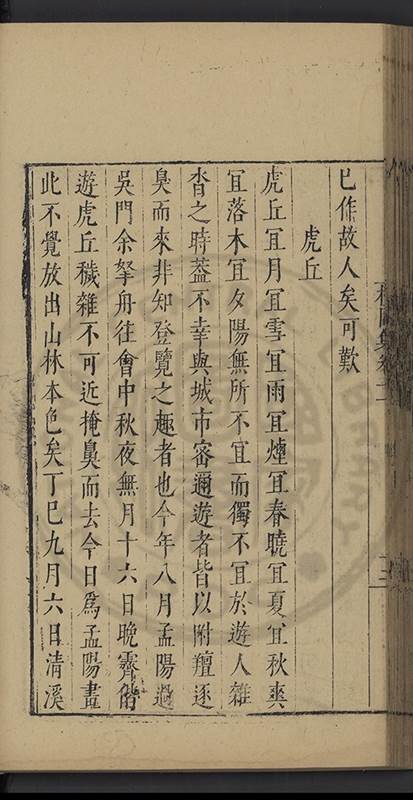 已作故人矣可歎
虎丘
虎丘宜月宜雪宜雨宜煙宜春曉宜夏宜秋爽
宜落木宜夕陽無所不宜而獨不宜於遊人雜
沓之時蓋不幸與城市密邇遊者皆以附羶逐
臭而來非知登覽之趣者也今年八月孟陽過
吳門余拏舟往會中秋夜無月十六日晚霽偕
遊虎丘穢雜不可近掩臭而去今日為孟陽畫
此不覺放出山林本色矣丁巳九月六日清溪